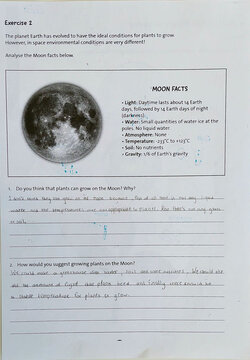 Exercise 2
The planet Earth has evolved to have the ideal conditions for plants to grow.
However, in space environmental conditions are very different!
Analyse the Moon facts below.
MOON FACTS
• Light: Daytime lasts about 14 Earth
days, followed by 14 Earth days of night
(darkness).
• Water: Small quantities of water ice at the
poles. No liquid water.
• Atmosphere: None
• Temperature: -233°C to +123°C
• Soil: No nutrients
• Gravity: 1/6 of Earth's gravity
1. Do you think that plants can grow on the Moon? Why?
I don't think they can grow on the moon because, first of all there is not any liquid
water and the temperatures are not appropriate to plants. Also there's not any grass
or soil.
2. How would you suggest growing plants on the Moon?
We could make a greenhouse also water, soil and more nutrients. We should
the amount of light and plants need and finally more
a stable temperature for plants to grow.